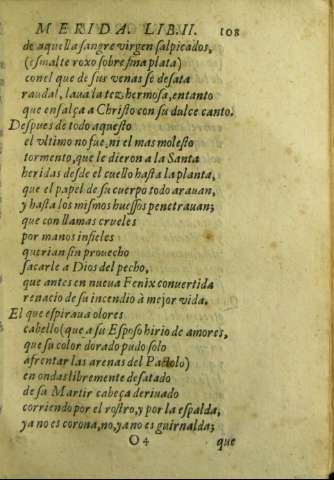 MERIDA. LIB. II. 108
de aquella sangre virgen salpicados,
(esmalte roxo sobre fina plata)
con el que de sus venas se desata
raudal, laua la tez hermosa, entanto
que ensalça a Christo con su dulce canto.
Despues de todo aquesto
el vltimo no fue, ni el mas molesto
tormento, que le dieron a la Santa
heridas desde el cuello hasta la planta,
que el papel de su cuerpo todo arauan,
y hasta los mismos huessos penetrauan;
que con llamas crueles
por manos infieles
querian sin prouecho
sacarle a Dios del pecho,
que antes en nueua Fenix conuertida
renacio de su incendio à mejor vida.
El que espiraua olores
cabello (que a su Esposo hirio de amores,
que su color dorado pudo solo
afrentar las arenas del Pactolo)
en ondas libremente desatado
de su Martir cabeça deriuado
corriendo por el rostro, y por la espalda,
ya no es corona, no, ya no es guirnalda;
O 4 que